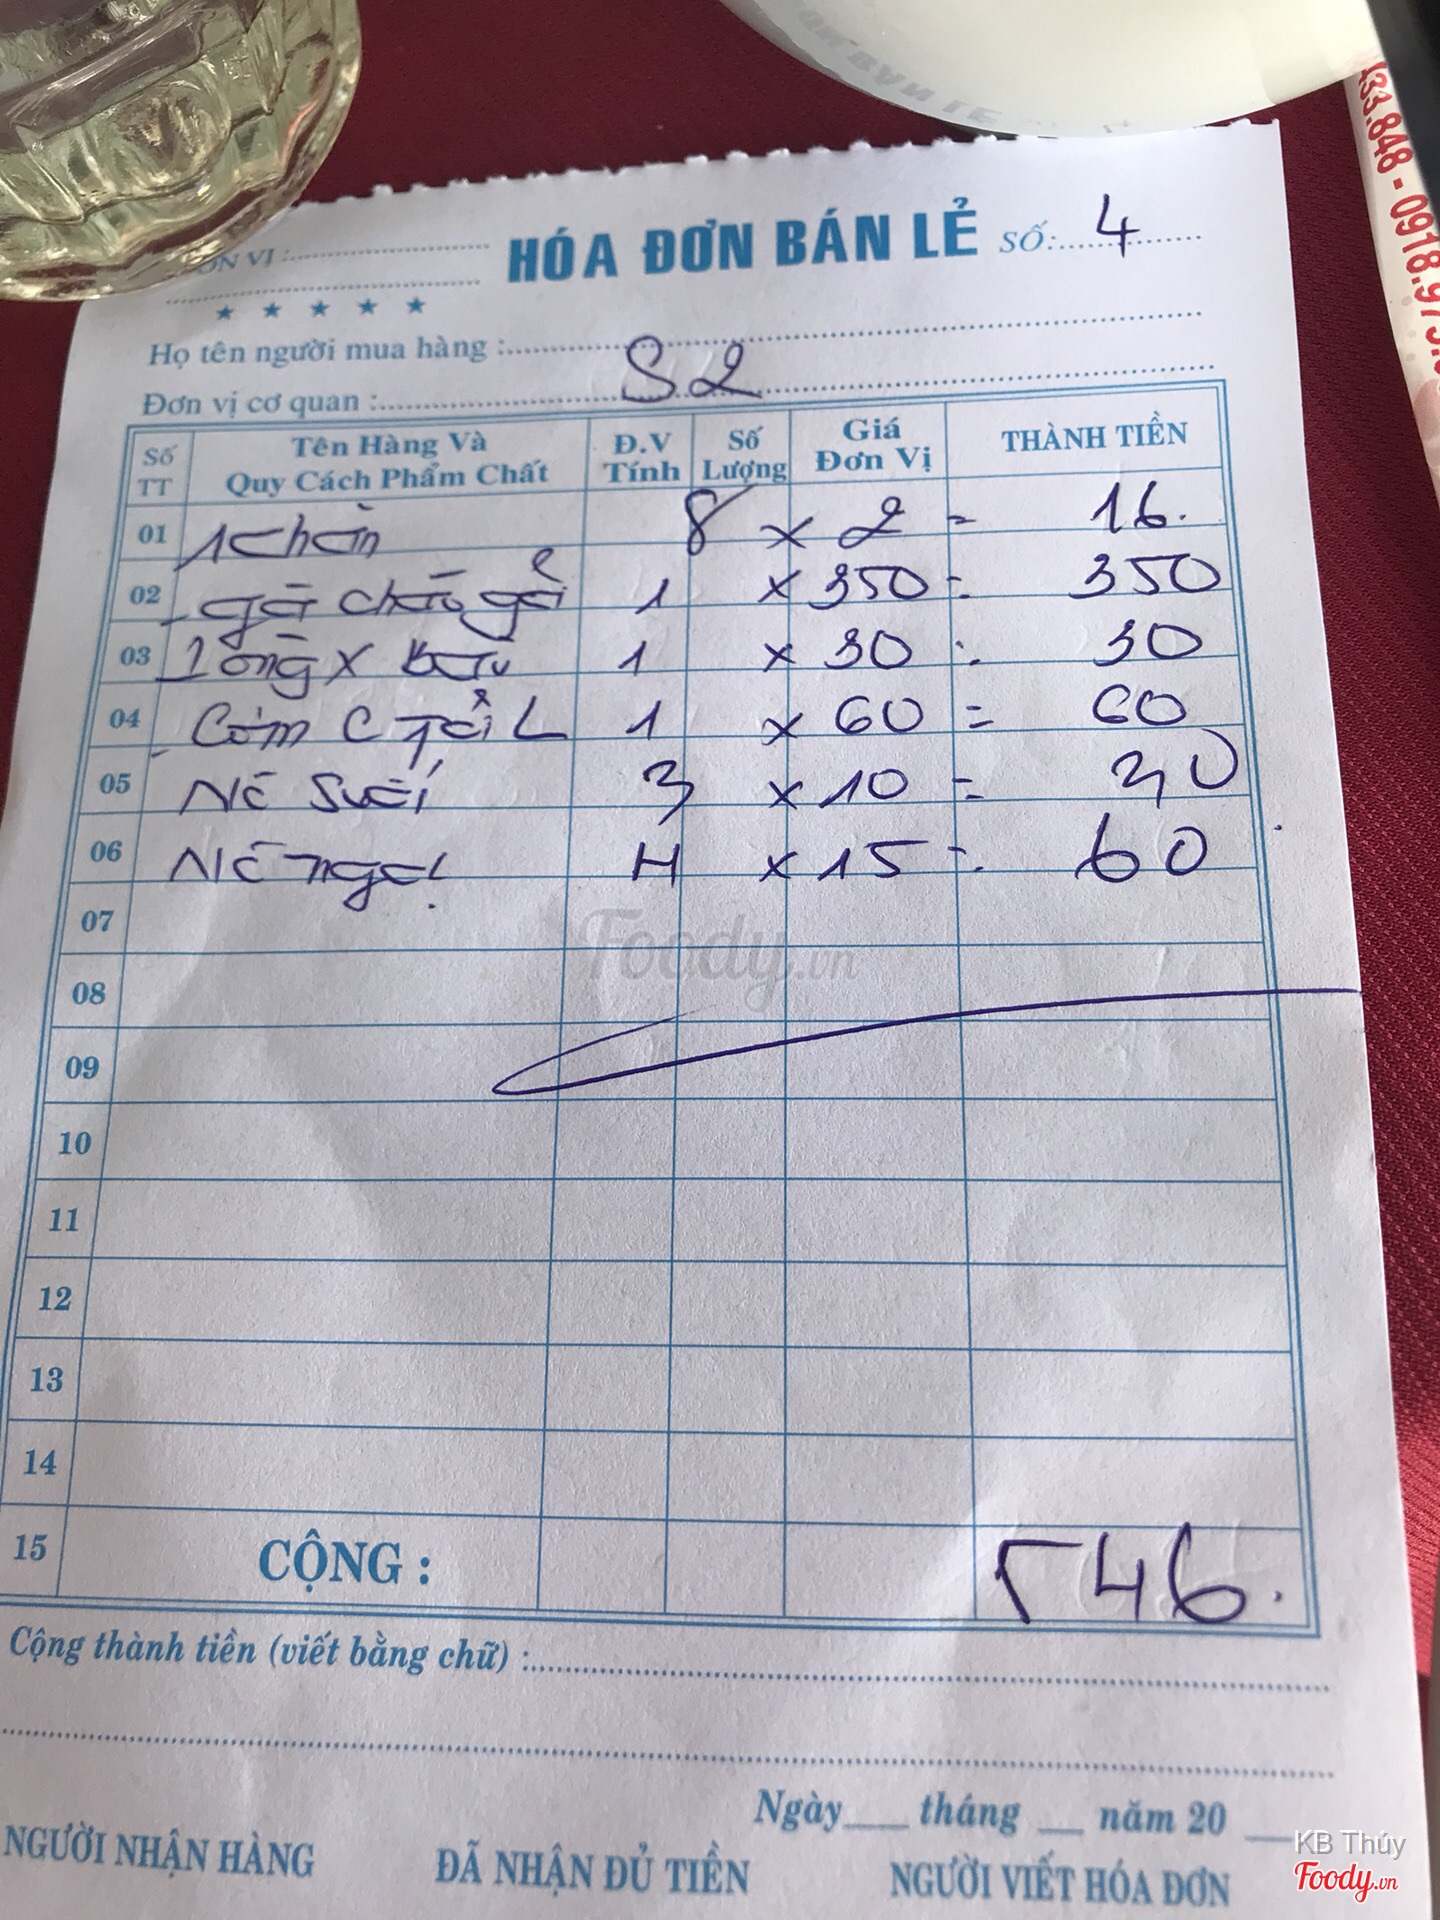 433.848 - 0918.973.
HÓA ĐƠN BÁN LẺ SỐ: 4
ƠN VỊ :
Họ tên người mua hàng :
Đơn vị cơ quan : S2
Số TT Tên Hàng Và Quy Cách Phẩm Chất Đ.V Tính Số Lượng Giá Đơn Vị THÀNH TIỀN
01 khăn 8 x 2 = 16.
02 gà cháo gỏi 1 x 350 = 350
03 lòng x bầu 1 x 30 = 30
04 Cơm C L 1 x 60 = 60
05 Nc Suối 3 x 10 = 30
06 Nc ngọt 4 x 15 = 60
07
Foody.vn
08
09
10
11
12
13
14
15 CỘNG : 546.
Cộng thành tiền (viết bằng chữ) :
Ngày tháng năm 20
NGƯỜI NHẬN HÀNG ĐÃ NHẬN ĐỦ TIỀN NGƯỜI VIẾT HÓA ĐƠN
KB Thúy
Foody.vn